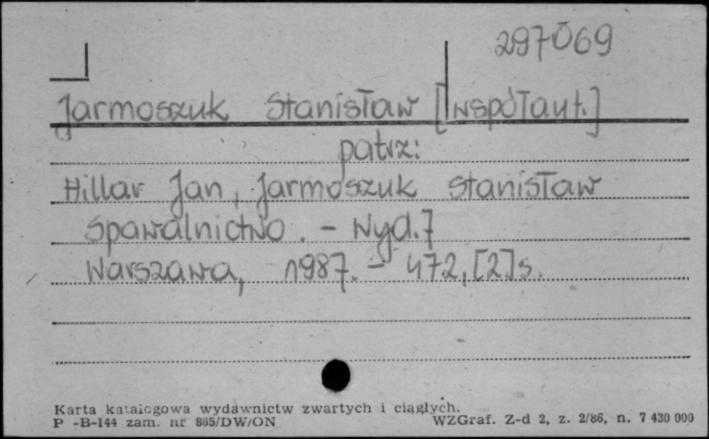 297069
Jarmoszuk Stanisław [współaut.]
patrz:
Hillar Jan, Jarmoszuk Stanisław
Spawalnictwo. - Wyd. 7
Warszawa, 1987. - 472, [2] s.
Karta katalogowa wydawnictw zwartych i ciągłych.
P -B-144 zam. nr 865/DW/ON WZGraf. Z-d 2, z. 2/86, n. 7 430 000